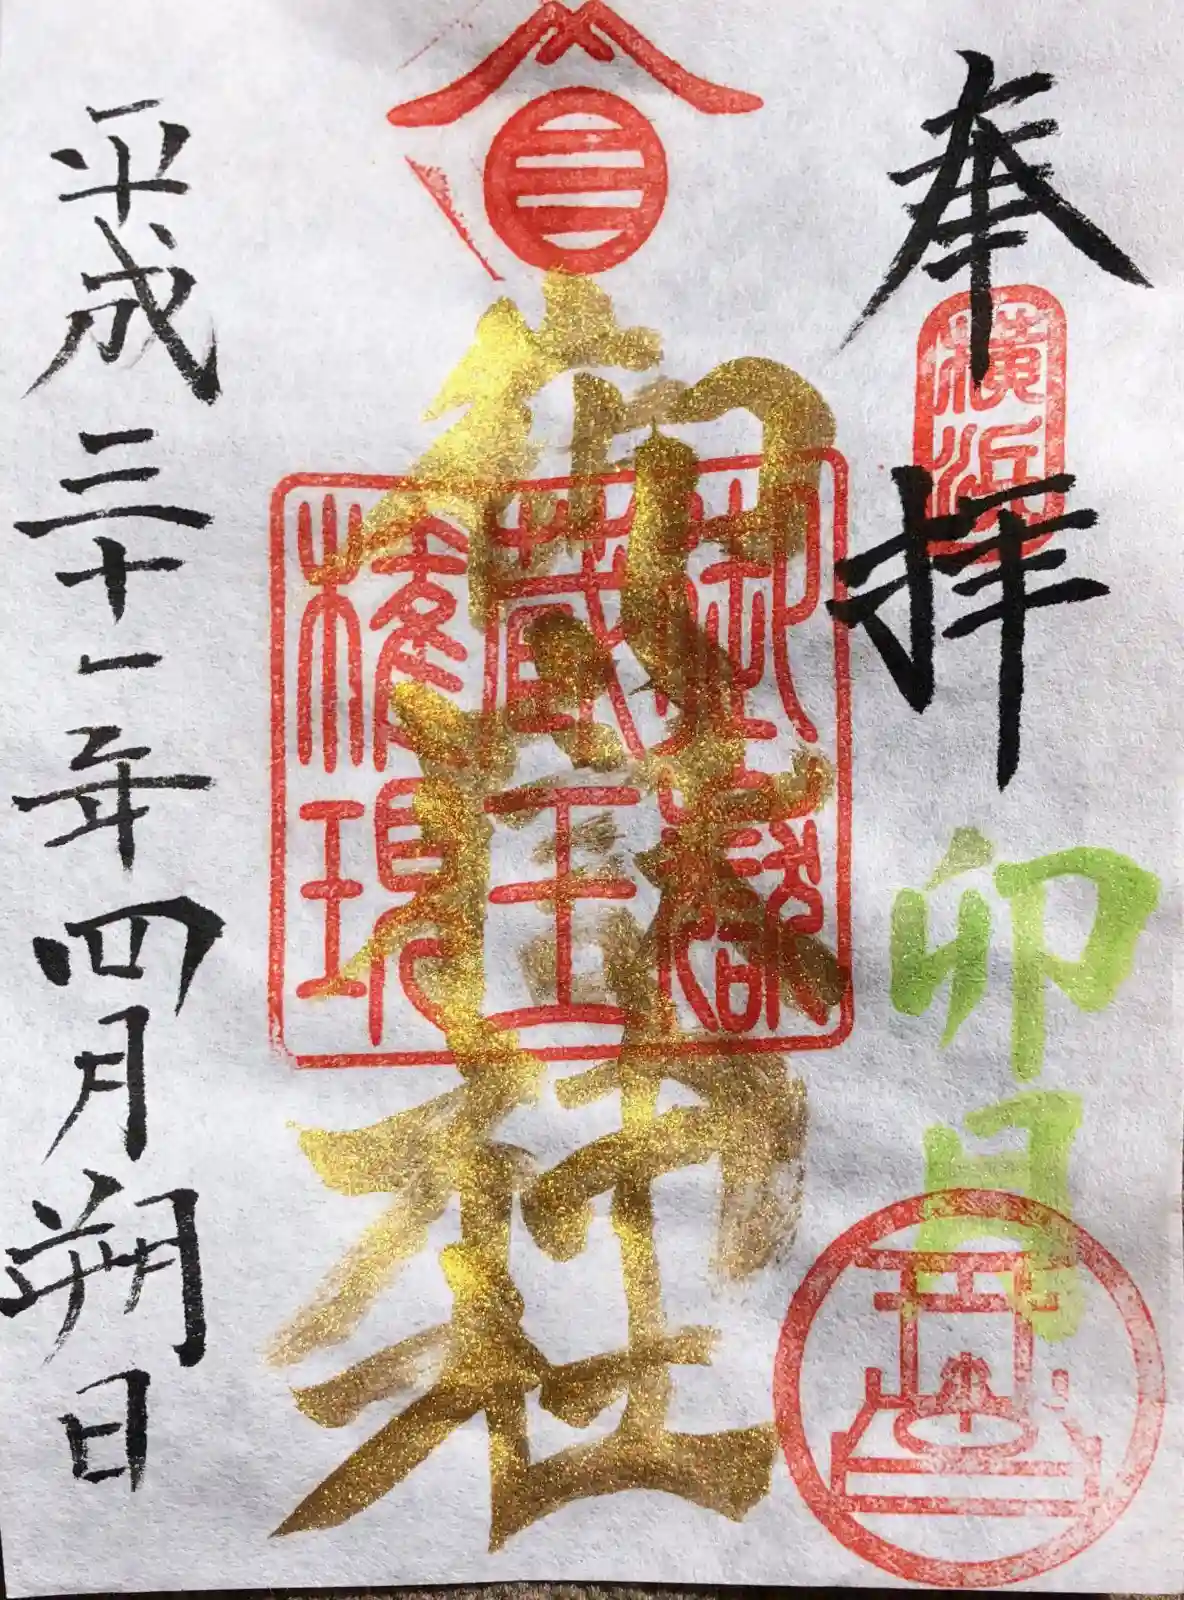 奉拝
横浜
卯月
御嶽神社
御嶽
蔵王
権現
平成三十一年四月朔日